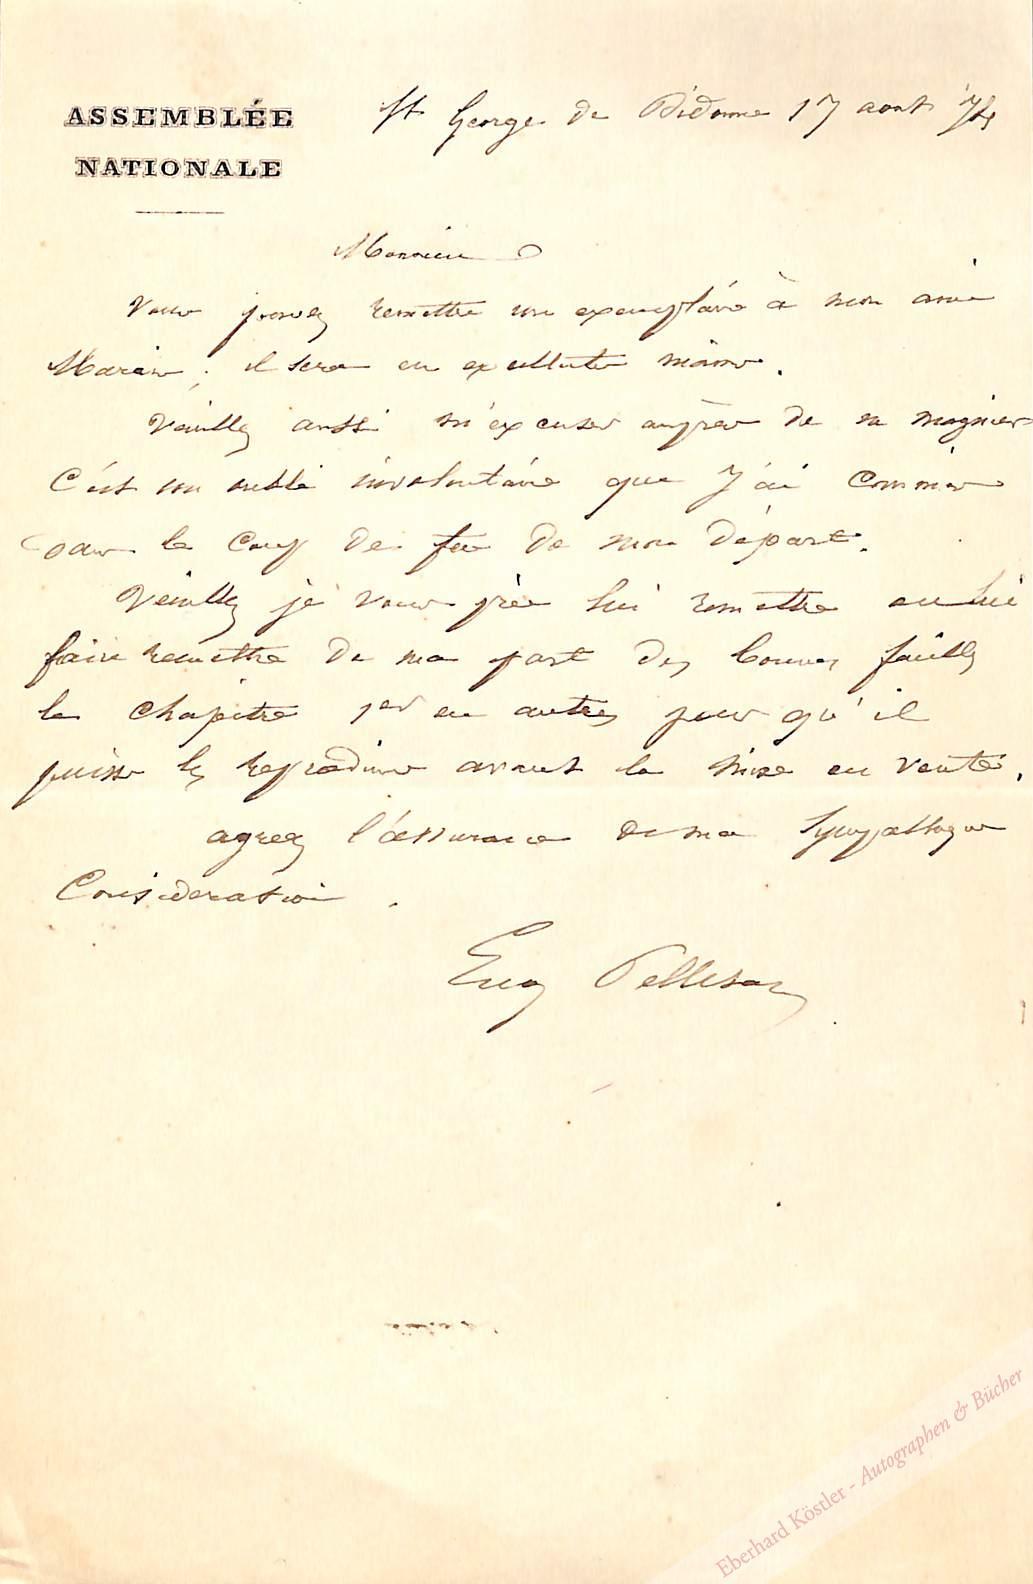 ASSEMBLÉE
NATIONALE
St George de Didonne 17 aout 74
Monsieur
Vous pouvez remettre un exemplaire à mon ami
Marin; il sera en excellente mains.
Veuillez aussi m'excuser auprès de M magnier
C'est un oubli involontaire que j'ai commis
dans le coup de feu de mon départ.
Veuillez je vous prie lui remettre ou lui
faire remettre de ma part des bonnes feuilles
le chapitre 1er ou autres pour qu'il
puisse les reproduire avant la mise en vente.
agreez l'assurance de ma sympathique
Consideration.
Eug Pelletan
Eberhard Köstler - Autographen & Bücher